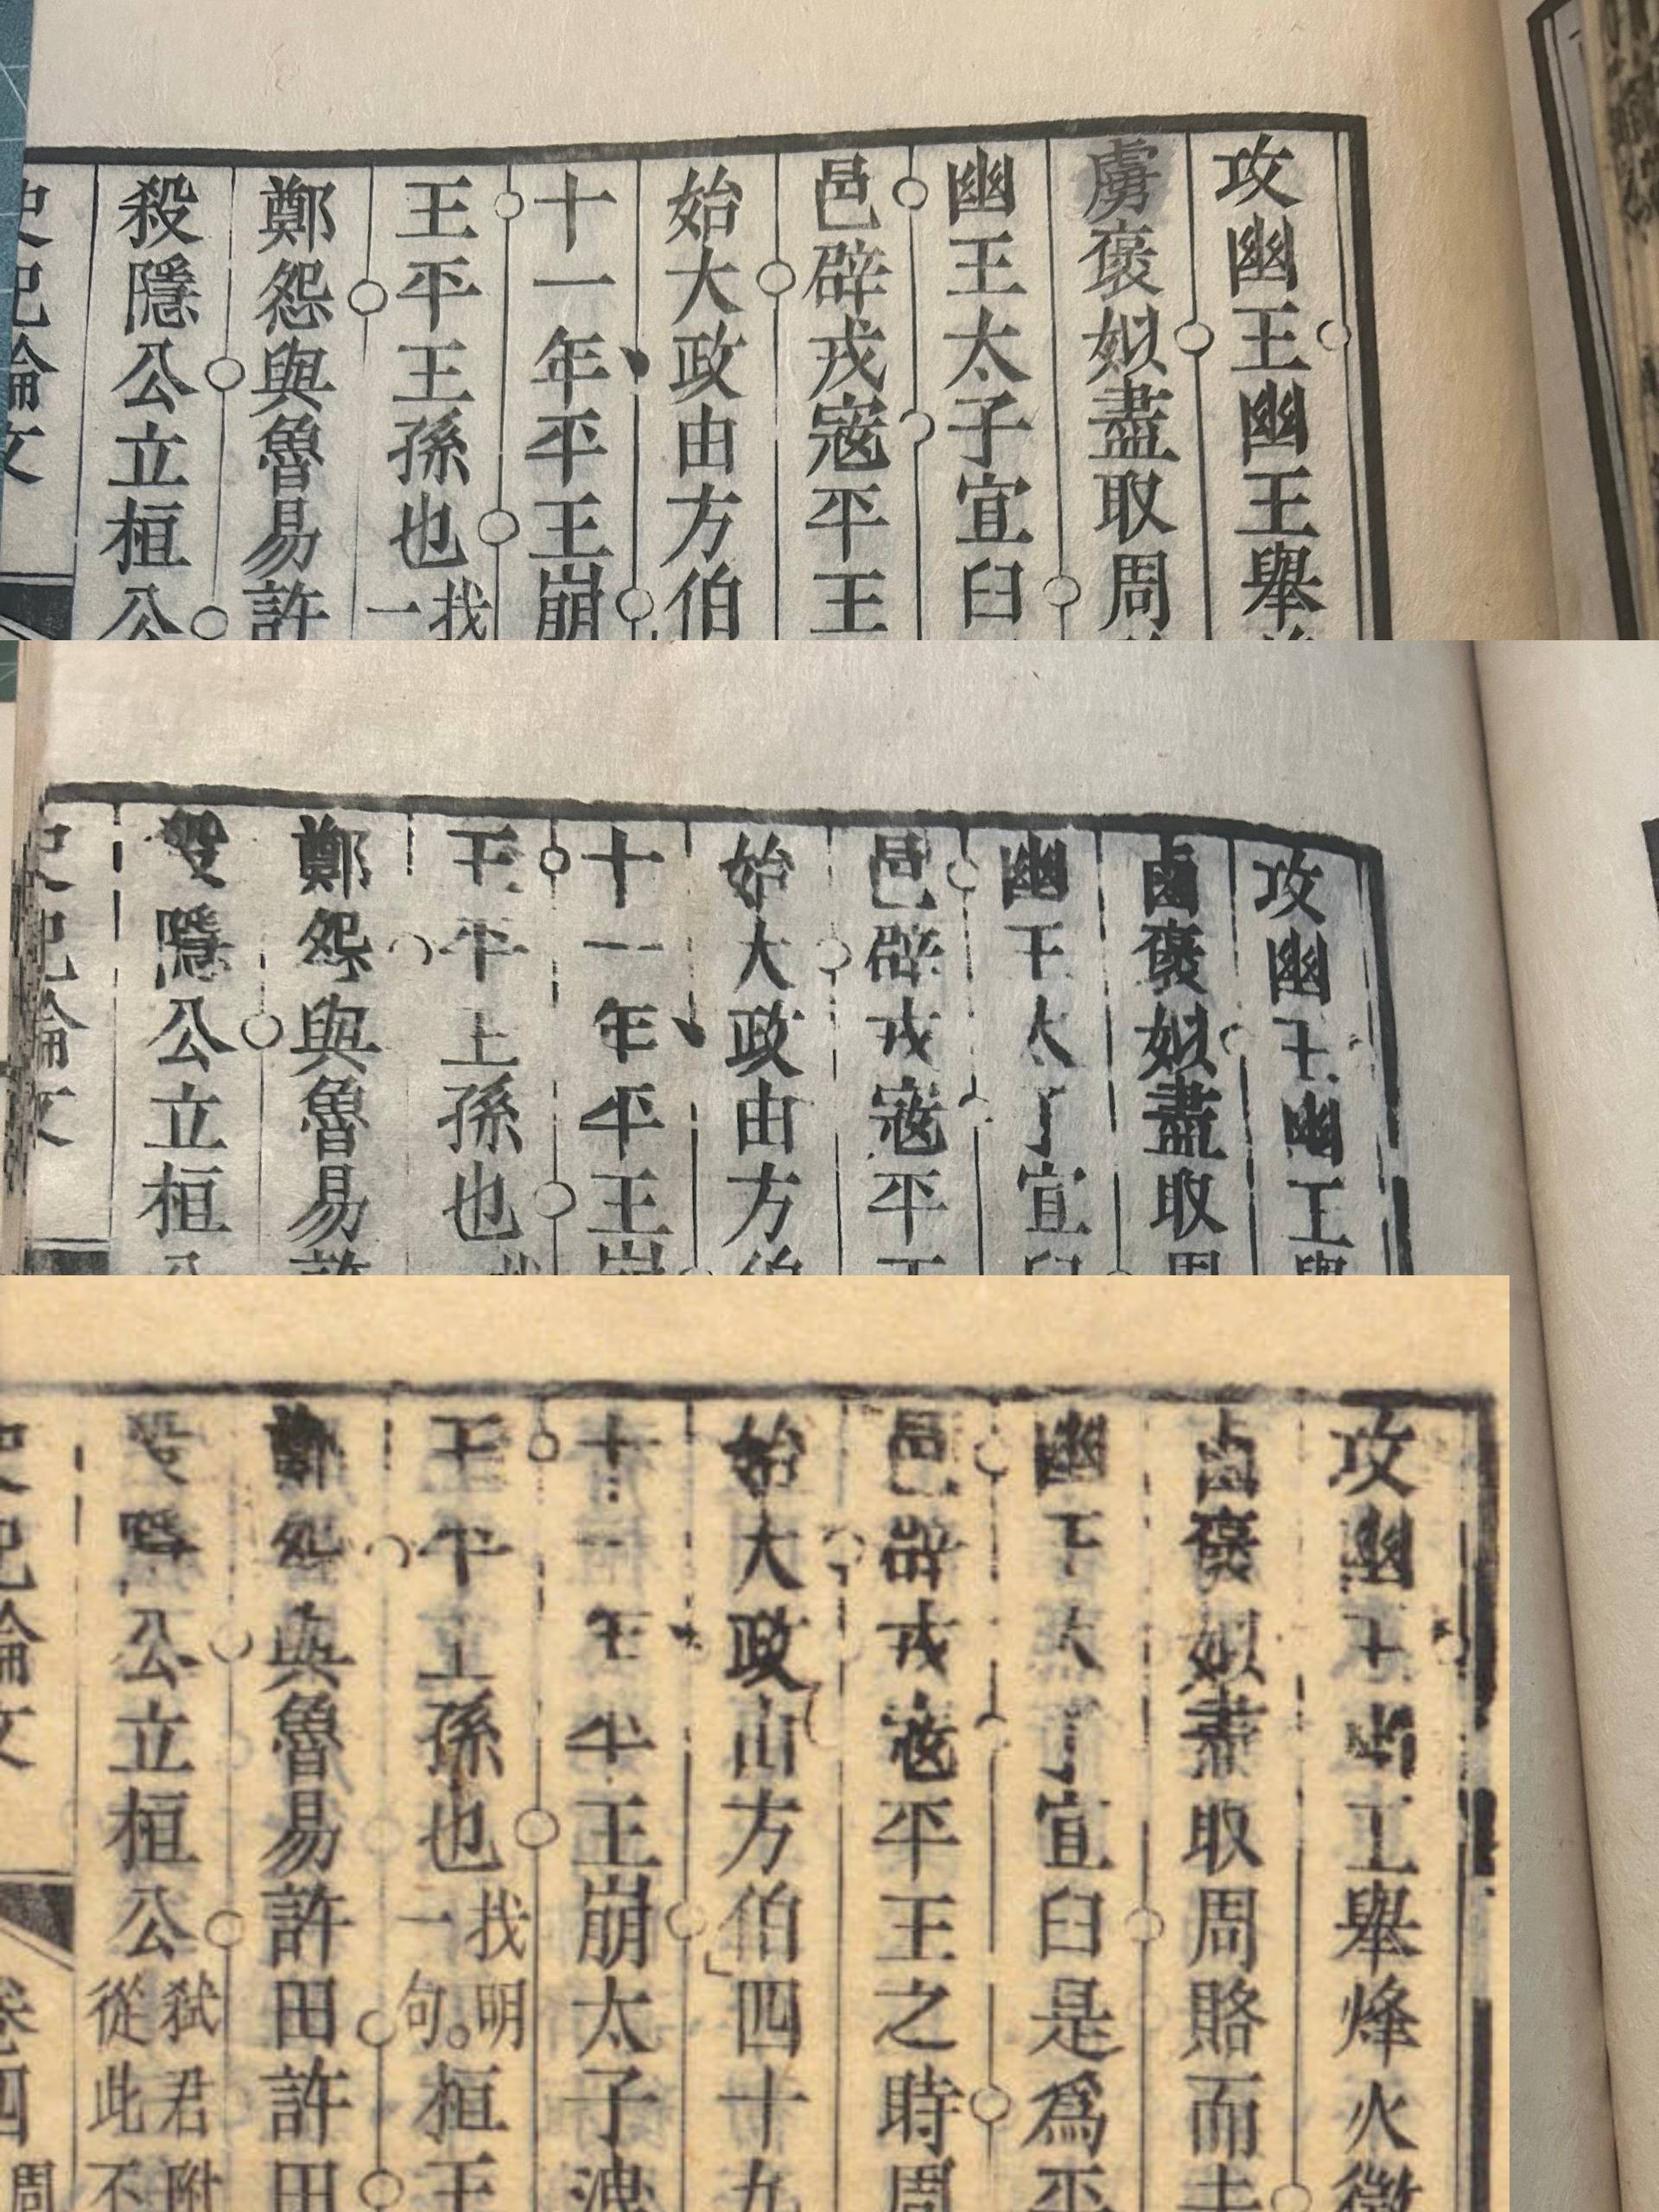 攻幽王幽王舉
虜褒姒盡取周
幽王太子宜臼
邑辟戎寇平王
始大政由方伯
十一年平王崩
王平王孫也找一
鄭怨與魯易許
殺隱公立桓公
史記論文
攻幽王幽王舉
鹵褒姒盡取周
幽王太子宜臼
邑辟戎寇平王
始大政由方伯
十一年平王崩
王平王孫也
鄭怨與魯易許
殺隱公立桓公
史記論文
攻幽王幽王舉烽火徵
鹵褒姒盡取周賂而去
幽王太子宜臼是爲平
邑辟戎寇平王之時周
始大政由方伯四十九
十一年平王崩太子洩
王平王孫也找明一句。桓王
鄭怨與魯易許田許田
殺隱公立桓公弒君附從此不
史記論文卷四周